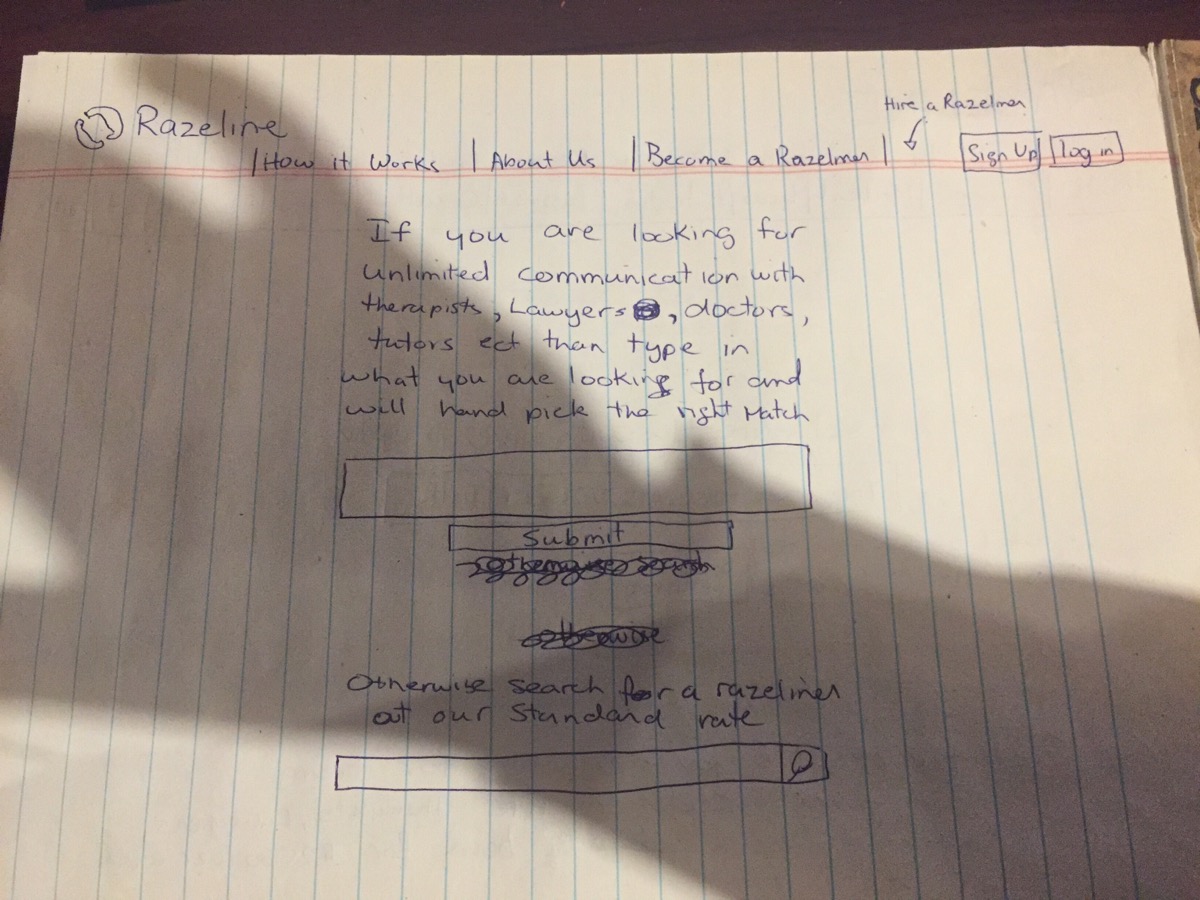 Razeline
Hire a Razelmen
| How it Works | About Us | Become a Razelmen |
Sign Up Log in
If you are looking for
unlimited communication with
therapists, Lawyers, doctors,
tutors ect than type in
what you are looking for and
will hand pick the right match
Submit
Otherwise search for a razelines
at our Standard rate